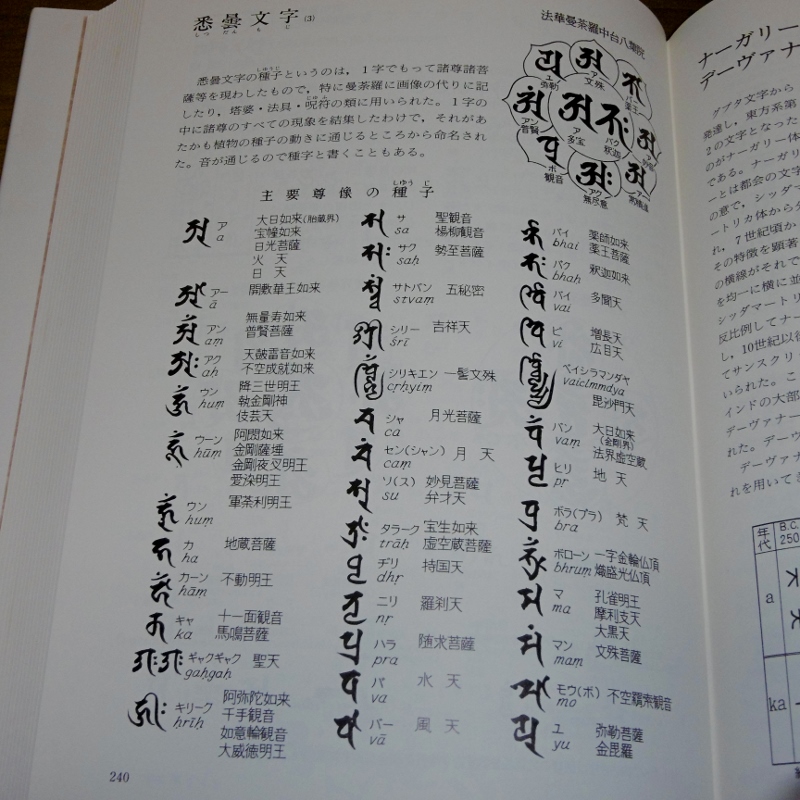 悉曇文字(3)
しったんもじ
悉曇文字の種子というのは，1字でもって諸尊諸菩
薩等を現わしたもので，特に曼荼羅に画像の代りに記
したり，塔婆・法具・呪符の類に用いられた。1字の
中に諸尊のすべての現象を結集したわけで，それがあ
たかも植物の種子の動きに通じるところから命名され
た。音が通じるので種字と書くこともある。
法華曼荼羅中台八葉院
ア
文殊
バー
薬王
ユ
弥勒
アン
普賢
ア
多宝
バク
釈迦
ボ
観音
アク
無尽意
主要尊像の種子
しゆうじ
ア
a
大日如来(胎蔵界)
宝幢如来
日光菩薩
火天
日天
アー
ā
開敷華王如来
アン
aṃ
無量寿如来
普賢菩薩
アク
aḥ
天鼓雷音如来
不空成就如来
ウン
huṃ
降三世明王
執金剛神
伎芸天
ウーン
hūṃ
阿閦如来
金剛薩埵
金剛夜叉明王
愛染明王
ウン
huṃ
軍荼利明王
カ
ha
地蔵菩薩
カーン
hāṃ
不動明王
キャ
ka
十一面観音
馬鳴菩薩
ギャクギャク
gaḥgaḥ
聖天
キリーク
hrīḥ
阿弥陀如来
千手観音
如意輪観音
大威徳明王
サ
sa
聖観音
楊柳観音
サク
saḥ
勢至菩薩
サトバン
stvaṃ
五秘密
シリー
śrī
吉祥天
シリキエン
cṛhyiṃ
一髻文殊
シャ
ca
月光菩薩
セン(シャン)
caṃ
月天
ソ(ス)
su
妙見菩薩
弁才天
タラーク
trāḥ
宝生如来
虚空蔵菩薩
ヂリ
dhṛ
持国天
ニリ
nṛ
羅刹天
ハラ
pra
随求菩薩
バ
va
水天
バー
vā
風天
バイ
bhai
薬師如来
薬王菩薩
バク
bhaḥ
釈迦如来
バイ
vai
多聞天
ビ
vi
増長天
広目天
ベイシラマンダヤ
vaiclmmdya
毘沙門天
バン
vaṃ
大日如来
(金剛界)
法界虚空蔵
ヒリ
pṛ
地天
ボラ(ブラ)
bra
梵天
ボローン
bhruṃ
一字金輪仏頂
熾盛光仏頂
マ
ma
孔雀明王
摩利支天
大黒天
マン
maṃ
文殊菩薩
モウ(ボ)
mo
不空羂索観音
ユ
yu
弥勒菩薩
金毘羅
240
ナーガリー
デーヴァナ
グプタ文字から
発達し，東方系第
2の文字となった
のがナーガリー体
である。ナーガリ
ーとは都会の文字
の意で，シッダマ
ートリカ体から分
れ，7世紀頃か
その特徴を顕著
の横線がそれで
を均一に横に並
シッダマートリ
反比例してナー
し，10世紀以後
てサンスクリ
いられた。こ
インドの大部
デーヴァナー
れた。デーヴ
デーヴァナ
れを用いてき
年代
B.C.
250
a
ka